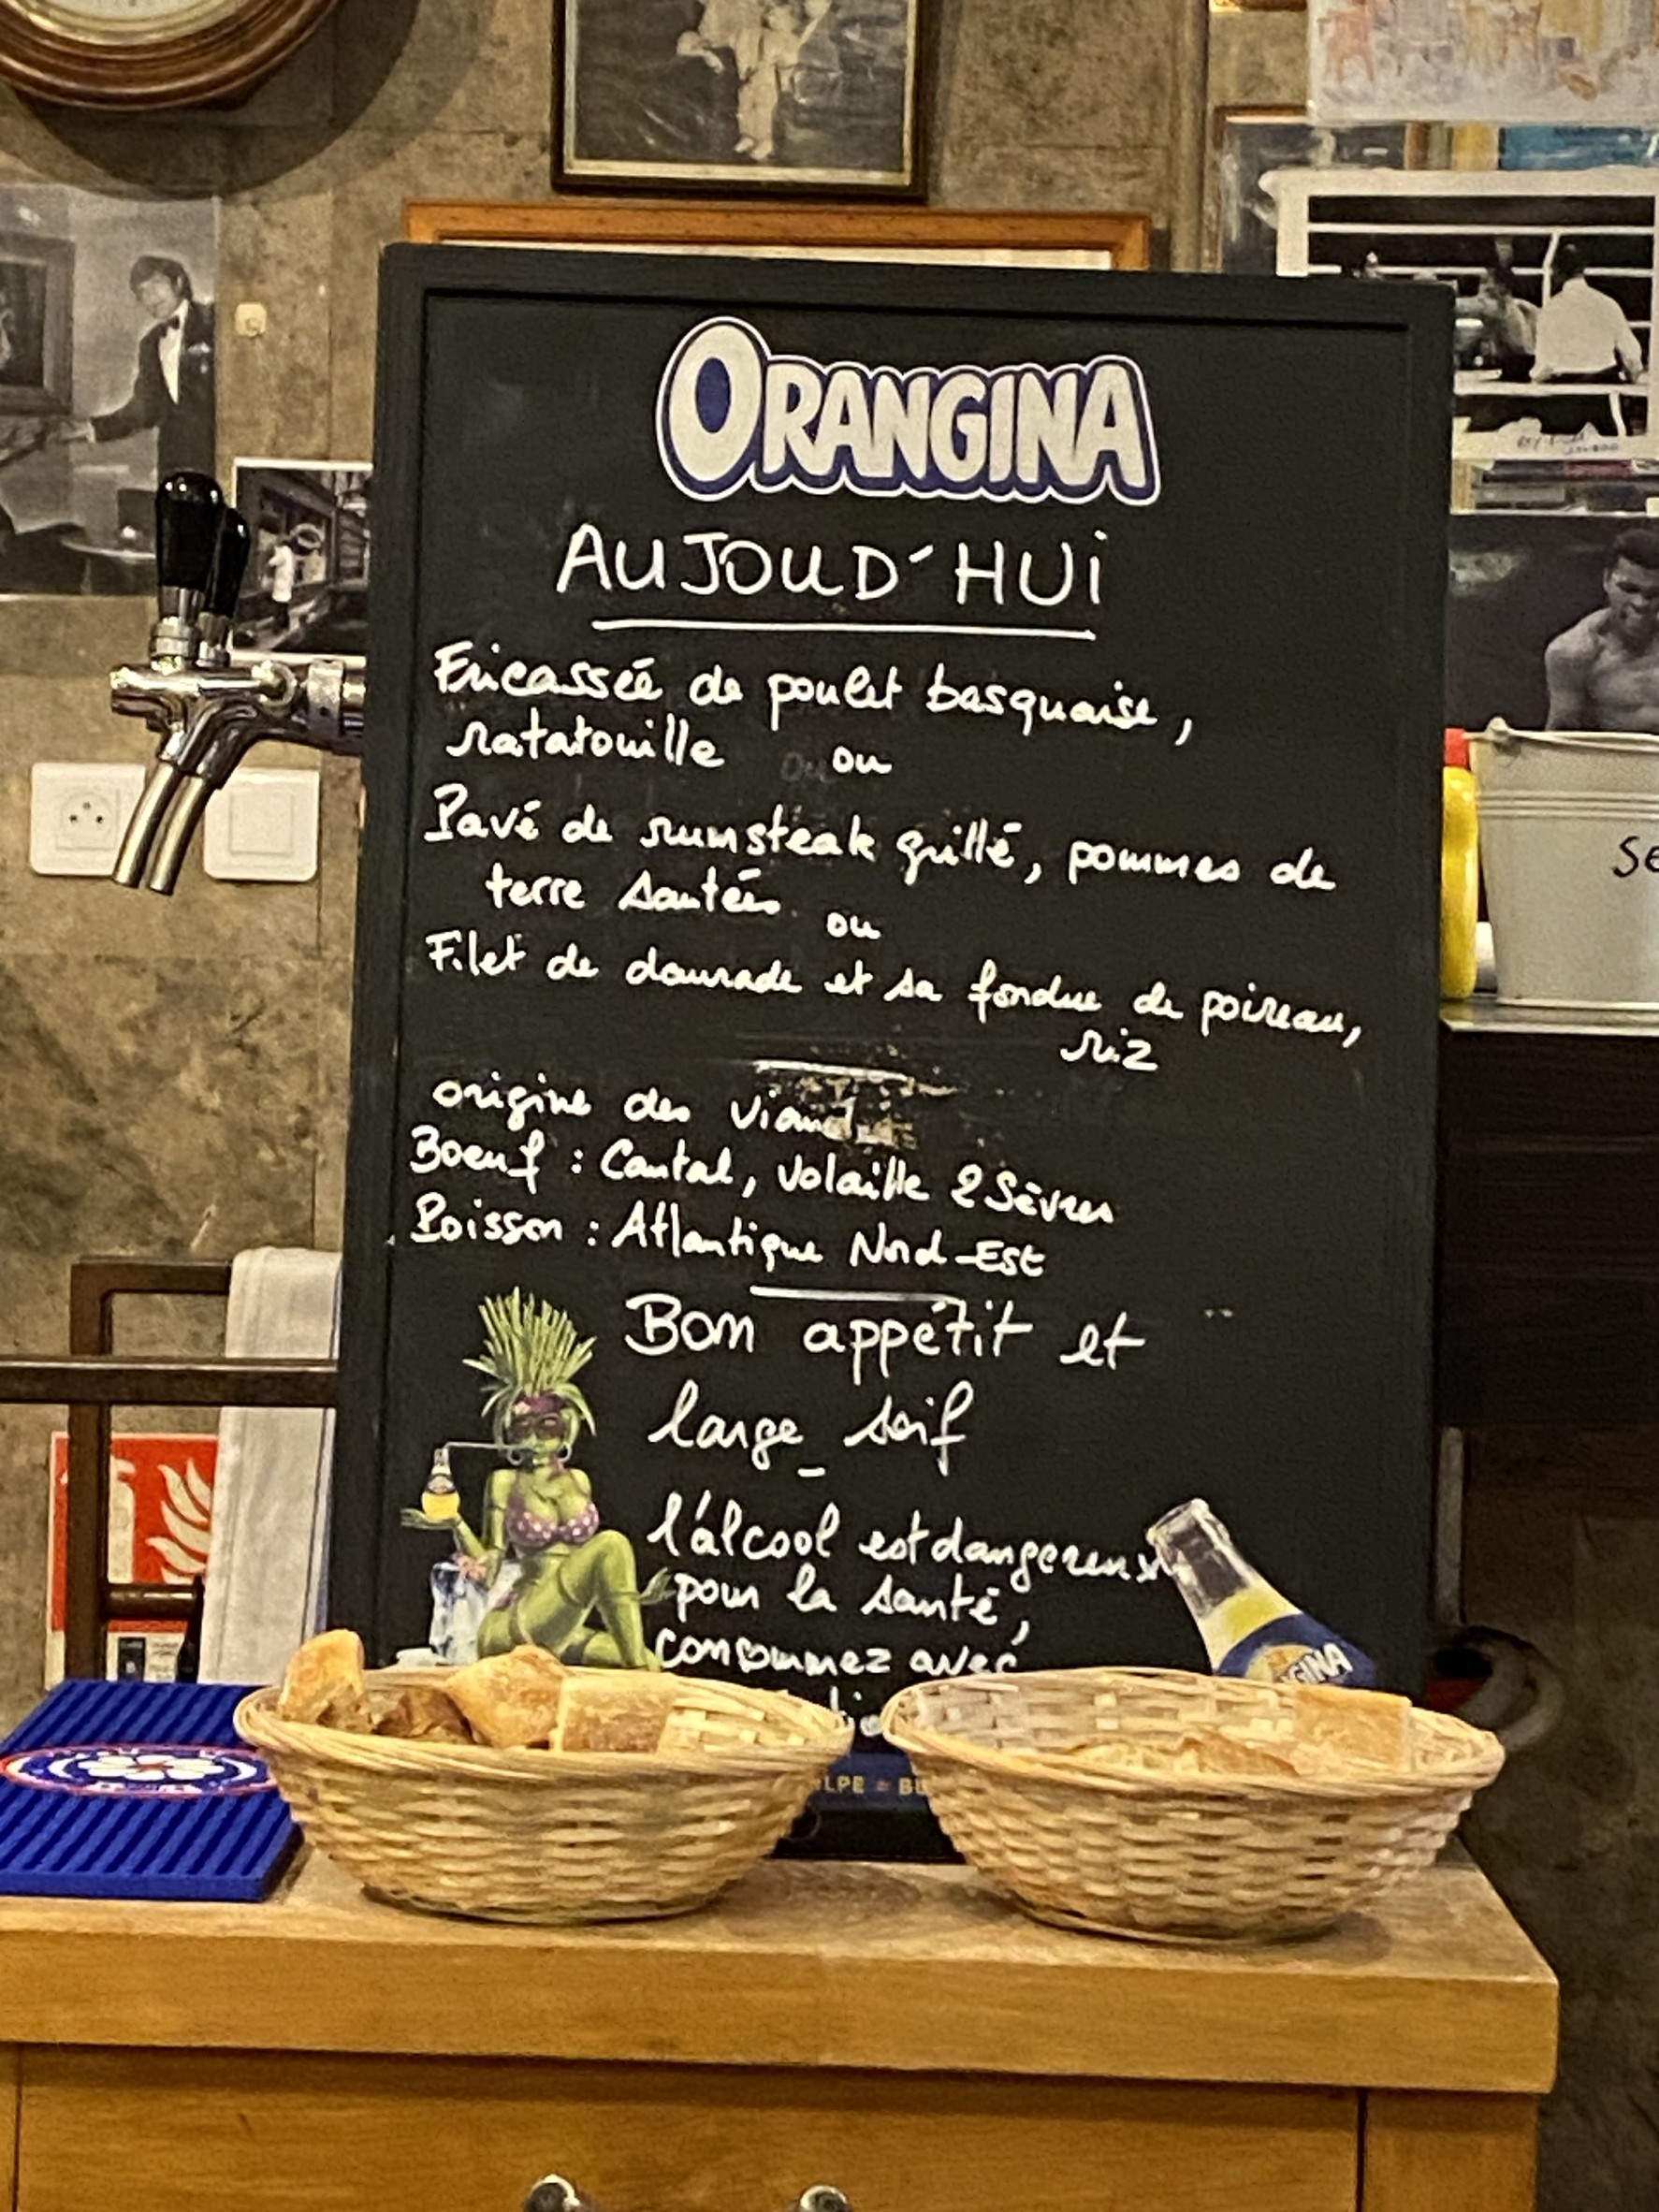 ORANGINA
AUJOUD'HUI
Fricassée de poulet basquaise,
ratatouille ou
Pavé de rumsteak grillé, pommes de
terre sautées ou
Filet de daurade et sa fondue de poireau,
riz
origine des viandes
Boeuf : Cantal, volaille 2 Sèvres
Poisson : Atlantique Nord-Est
Bon appétit et
large soif
l'alcool est dangereux
pour la santé,
consommez avec
GINA